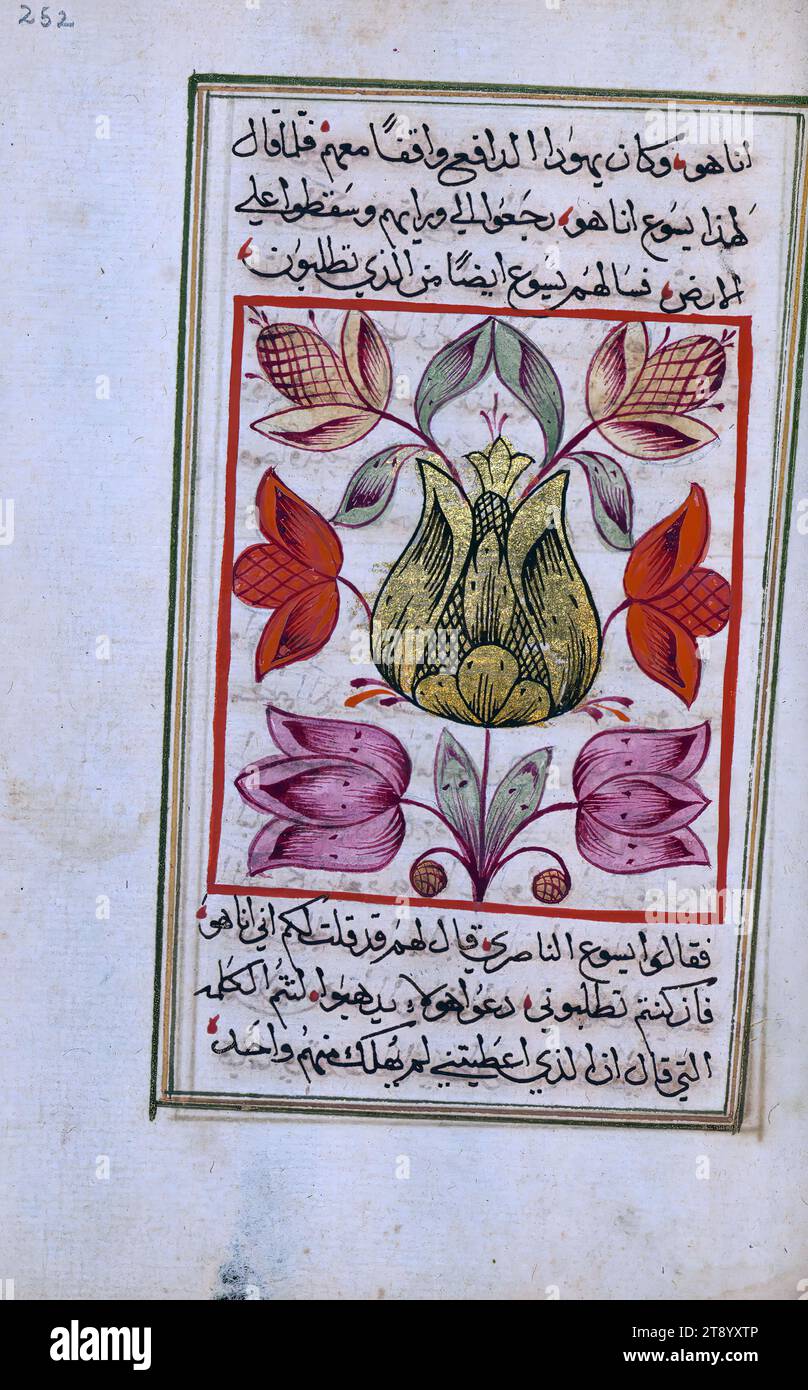 252
انا هو، وكان يهودا الدافع واقفًا معهم فلما قال
لهذا يسوع انا هو، رجعوا الي ورايهم وسقطوا علي
الارض، فسالهم يسوع ايضًا من الذي تطلبون
فقالوا يسوع الناصري قال لهم قد قلت لكم اني انا هو
فان كنتم تطلبوني دعوا هولاء يذهبوا، لتتم الكلمه
التي قال ان الذي اعطيتني لم يهلك منهم واحد
alamy
Image ID: 2T8YXTP
www.alamy.com